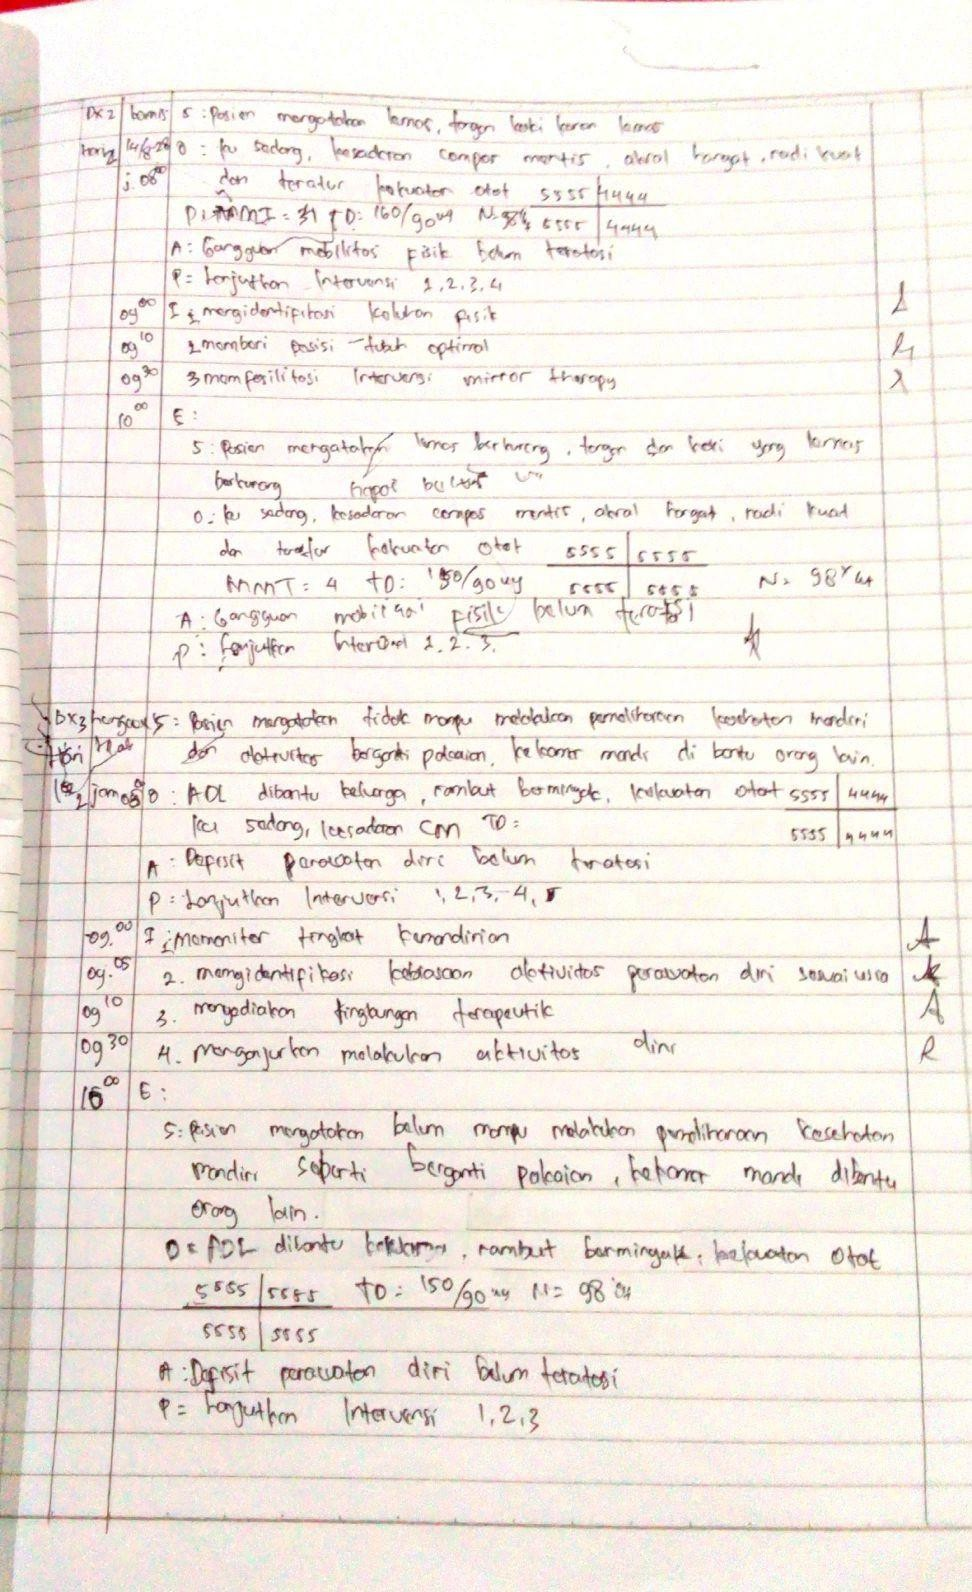 DX 2 kamis S : Pasien mengatakan lemas, tangan kaki kanan lemas
hari 2 O : ku sedang, kesadaran compos mentis, akral hangat, nadi kuat
j. 08⁰⁰ dan teratur kekuatan otot 5555 | 4444
= 31 TD: 160/90 N: 98 5555 | 4444
A : Gangguan mobilitas fisik belum teratasi
P = Lanjutkan Intervensi 1, 2, 3, 4
09⁰⁰ I 1 mengidentifikasi keluhan fisik
09¹⁰ 2 memberi posisi tubuh optimal
09³⁰ 3 memfasilitasi Intervensi mirror therapy
10⁰⁰ E :
S : Pasien mengatakan lemas berkurang, tangan dan kaki yang lemas
berkurang
O : ku sedang, kesadaran compos mentis, akral hangat, nadi kuat
dan teratur kekuatan otot 5555 | 5555
MMT = 4 TD : 150/90 5555 | 5555 N = 98
A : Gangguan mobilitas fisik belum teratasi
P : Lanjutkan 1. 2. 3.
DX3 S : Pasien mengatakan tidak mampu melakukan pemeliharaan kesehatan mandiri
Hari dan aktivitas berganti pakaian, kekamar mandi di bantu orang lain.
2 jam 08 O : ADL dibantu keluarga, rambut berminyak, kekuatan otot 5555 | 4444
ku sedang, kesadaran CM TD : 5555 | 4444
A : Defisit perawatan diri belum teratasi
P = Lanjutkan Intervensi 1, 2, 3, 4,
09.⁰⁰ I 1 Memoniter tingkat kemandirian
09.⁰⁵ 2. mengidentifikasi kebiasaan aktivitas perawatan diri sesuai usia
09¹⁰ 3. menyediakan lingkungan terapeutik
09³⁰ 4. menganjurkan melakukan aktivitas diri
E :
S : Pasien mengatakan belum mampu melakukan pemeliharaan kesehatan
mandiri seperti berganti pakaian, kekamar mandi dibantu
orang lain.
O = ADL dibantu keluarga, rambut berminyak, kekuatan otot
5555 | 5555 TD : 150/90 N = 98
5555 | 5555
A : Defisit perawatan diri belum teratasi
P = Lanjutkan Intervensi 1, 2, 3